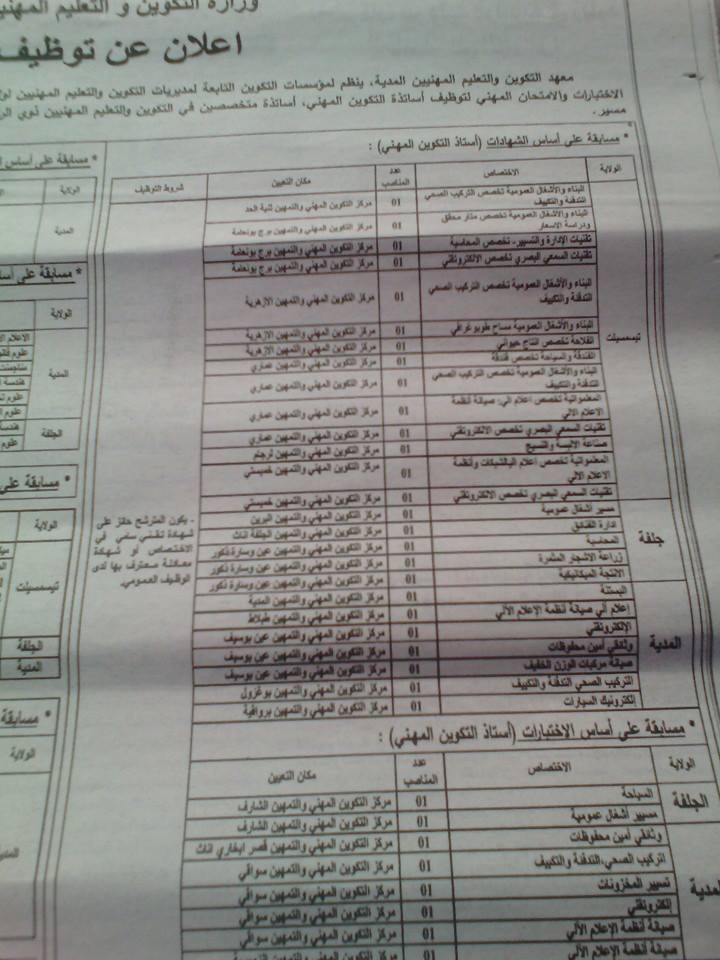 وزارة التكوين و التعليم المهنيين
اعلان عن توظيف
معهد التكوين والتعليم المهنيين المدية، ينظم لمؤسسات التكوين التابعة لمديريات التكوين والتعليم المهنيين
الاختبارات والامتحان المهني لتوظيف أساتذة التكوين المهني، أساتذة متخصصين في التكوين والتعليم المهنيين ذوي
مسير.
* مسابقة على أساس الشهادات (أستاذ التكوين المهني) :
الولاية الاختصاص عدد المناصب مكان التعيين شروط التوظيف
تيسمسيلت
البناء والأشغال العمومية تخصص التركيب الصحي التدفئة والتكييف 01 مركز التكوين المهني والتمهين ثنية الحد
البناء والأشغال العمومية تخصص متار محقق ودراسة الاسعار 01 مركز التكوين المهني والتمهين برج بونعامة
تقنيات الإدارة والتسيير، تخصص المحاسبة 01 مركز التكوين المهني والتمهين برج بونعامة
تقنيات السمعي البصري تخصص الالكتروتقني 01 مركز التكوين المهني والتمهين برج بونعامة
البناء والأشغال العمومية تخصص التركيب الصحي التدفئة والتكييف 01 مركز التكوين المهني والتمهين الازهرية
البناء والأشغال العمومية مساح طوبوغرافي 01 مركز التكوين المهني والتمهين الازهرية
الفلاحة تخصص انتاج حيواني 01 مركز التكوين المهني والتمهين الازهرية
الفندقة والسياحة تخصص فندقة 01 مركز التكوين المهني والتمهين عماري
البناء والأشغال العمومية تخصص التركيب الصحي التدفئة والتكييف 01 مركز التكوين المهني والتمهين عماري
المعلوماتية تخصص اعلام الي: صيانة أنظمة الاعلام الالي 01 مركز التكوين المهني والتمهين عماري
تقنيات السمعي البصري تخصص الالكتروتقني 01 مركز التكوين المهني والتمهين عماري
صناعة الالبسة والنسيج 01 مركز التكوين المهني والتمهين لرجام
المعلوماتية تخصص اعلام الي/الشبكات وأنظمة الاعلام الالي 01 مركز التكوين المهني والتمهين خميستي
تقنيات السمعي البصري تخصص الالكتروتقني 01 مركز التكوين المهني والتمهين خميستي
جلفة
مسير أشغال عمومية 01 مركز التكوين المهني والتمهين البرين
ادارة الفنادق 01 مركز التكوين المهني والتمهين الجلفة اناث
المحاسبة 01 مركز التكوين المهني والتمهين عين وسارة ذكور
زراعة الاشجار المثمرة 01 مركز التكوين المهني والتمهين عين وسارة ذكور
الانتجة الميكانيكية 01 مركز التكوين المهني والتمهين عين وسارة ذكور
- يكون المترشح حائز على
شهادة تقني سامي في
الاختصاص أو شهادة
معادلة معترف بها لدى
الوظيف العمومي.
المدية
البستنة 01 مركز التكوين المهني والتمهين المدية
إعلام آلي صيانة أنظمة الإعلام الآلي 01 مركز التكوين المهني والتمهين
الإلكتروتقني 01 مركز التكوين المهني والتمهين عين بوسيف
وثائقي أمين محفوظات 01 مركز التكوين المهني والتمهين عين بوسيف
صيانة مركبات الوزن الخفيف 01 مركز التكوين المهني والتمهين عين بوسيف
التركيب الصحي التدفئة والتكييف 01 مركز التكوين المهني والتمهين بوغزول
إلكترونيك السيارات 01 مركز التكوين المهني والتمهين
* مسابقة على أساس الاختبارات (أستاذ التكوين المهني) :
الولاية الاختصاص عدد المناصب مكان التعيين
الجلفة
السياحة 01 مركز التكوين المهني والتمهين الشارف
مسيير أشغال عمومية 01 مركز التكوين المهني والتمهين الشارف
المدية
وثائقي أمين محفوظات 01 مركز التكوين المهني والتمهين قصر ابخاري اناث
التركيب الصحي،التدفئة والتكييف 01 مركز التكوين المهني والتمهين سواقي
تسيير المخزونات 01 مركز التكوين المهني والتمهين سواقي
إلكتروتقني 01 مركز التكوين المهني والتمهين سواقي
صيانة أنظمة الإعلام الآلي 01 مركز التكوين المهني والتمهين سواقي
صيانة أنظمة الإعلام الآلي 01 مركز التكوين المهني والتمهين
* مسابقة على أساس
الولاية
المدية
* مسابقة على
الولاية
المدية
الجلفة
* مسابقة على
الولاية
تيسمسيلت
الجلفة
المدية
* مسابقة
الولاية